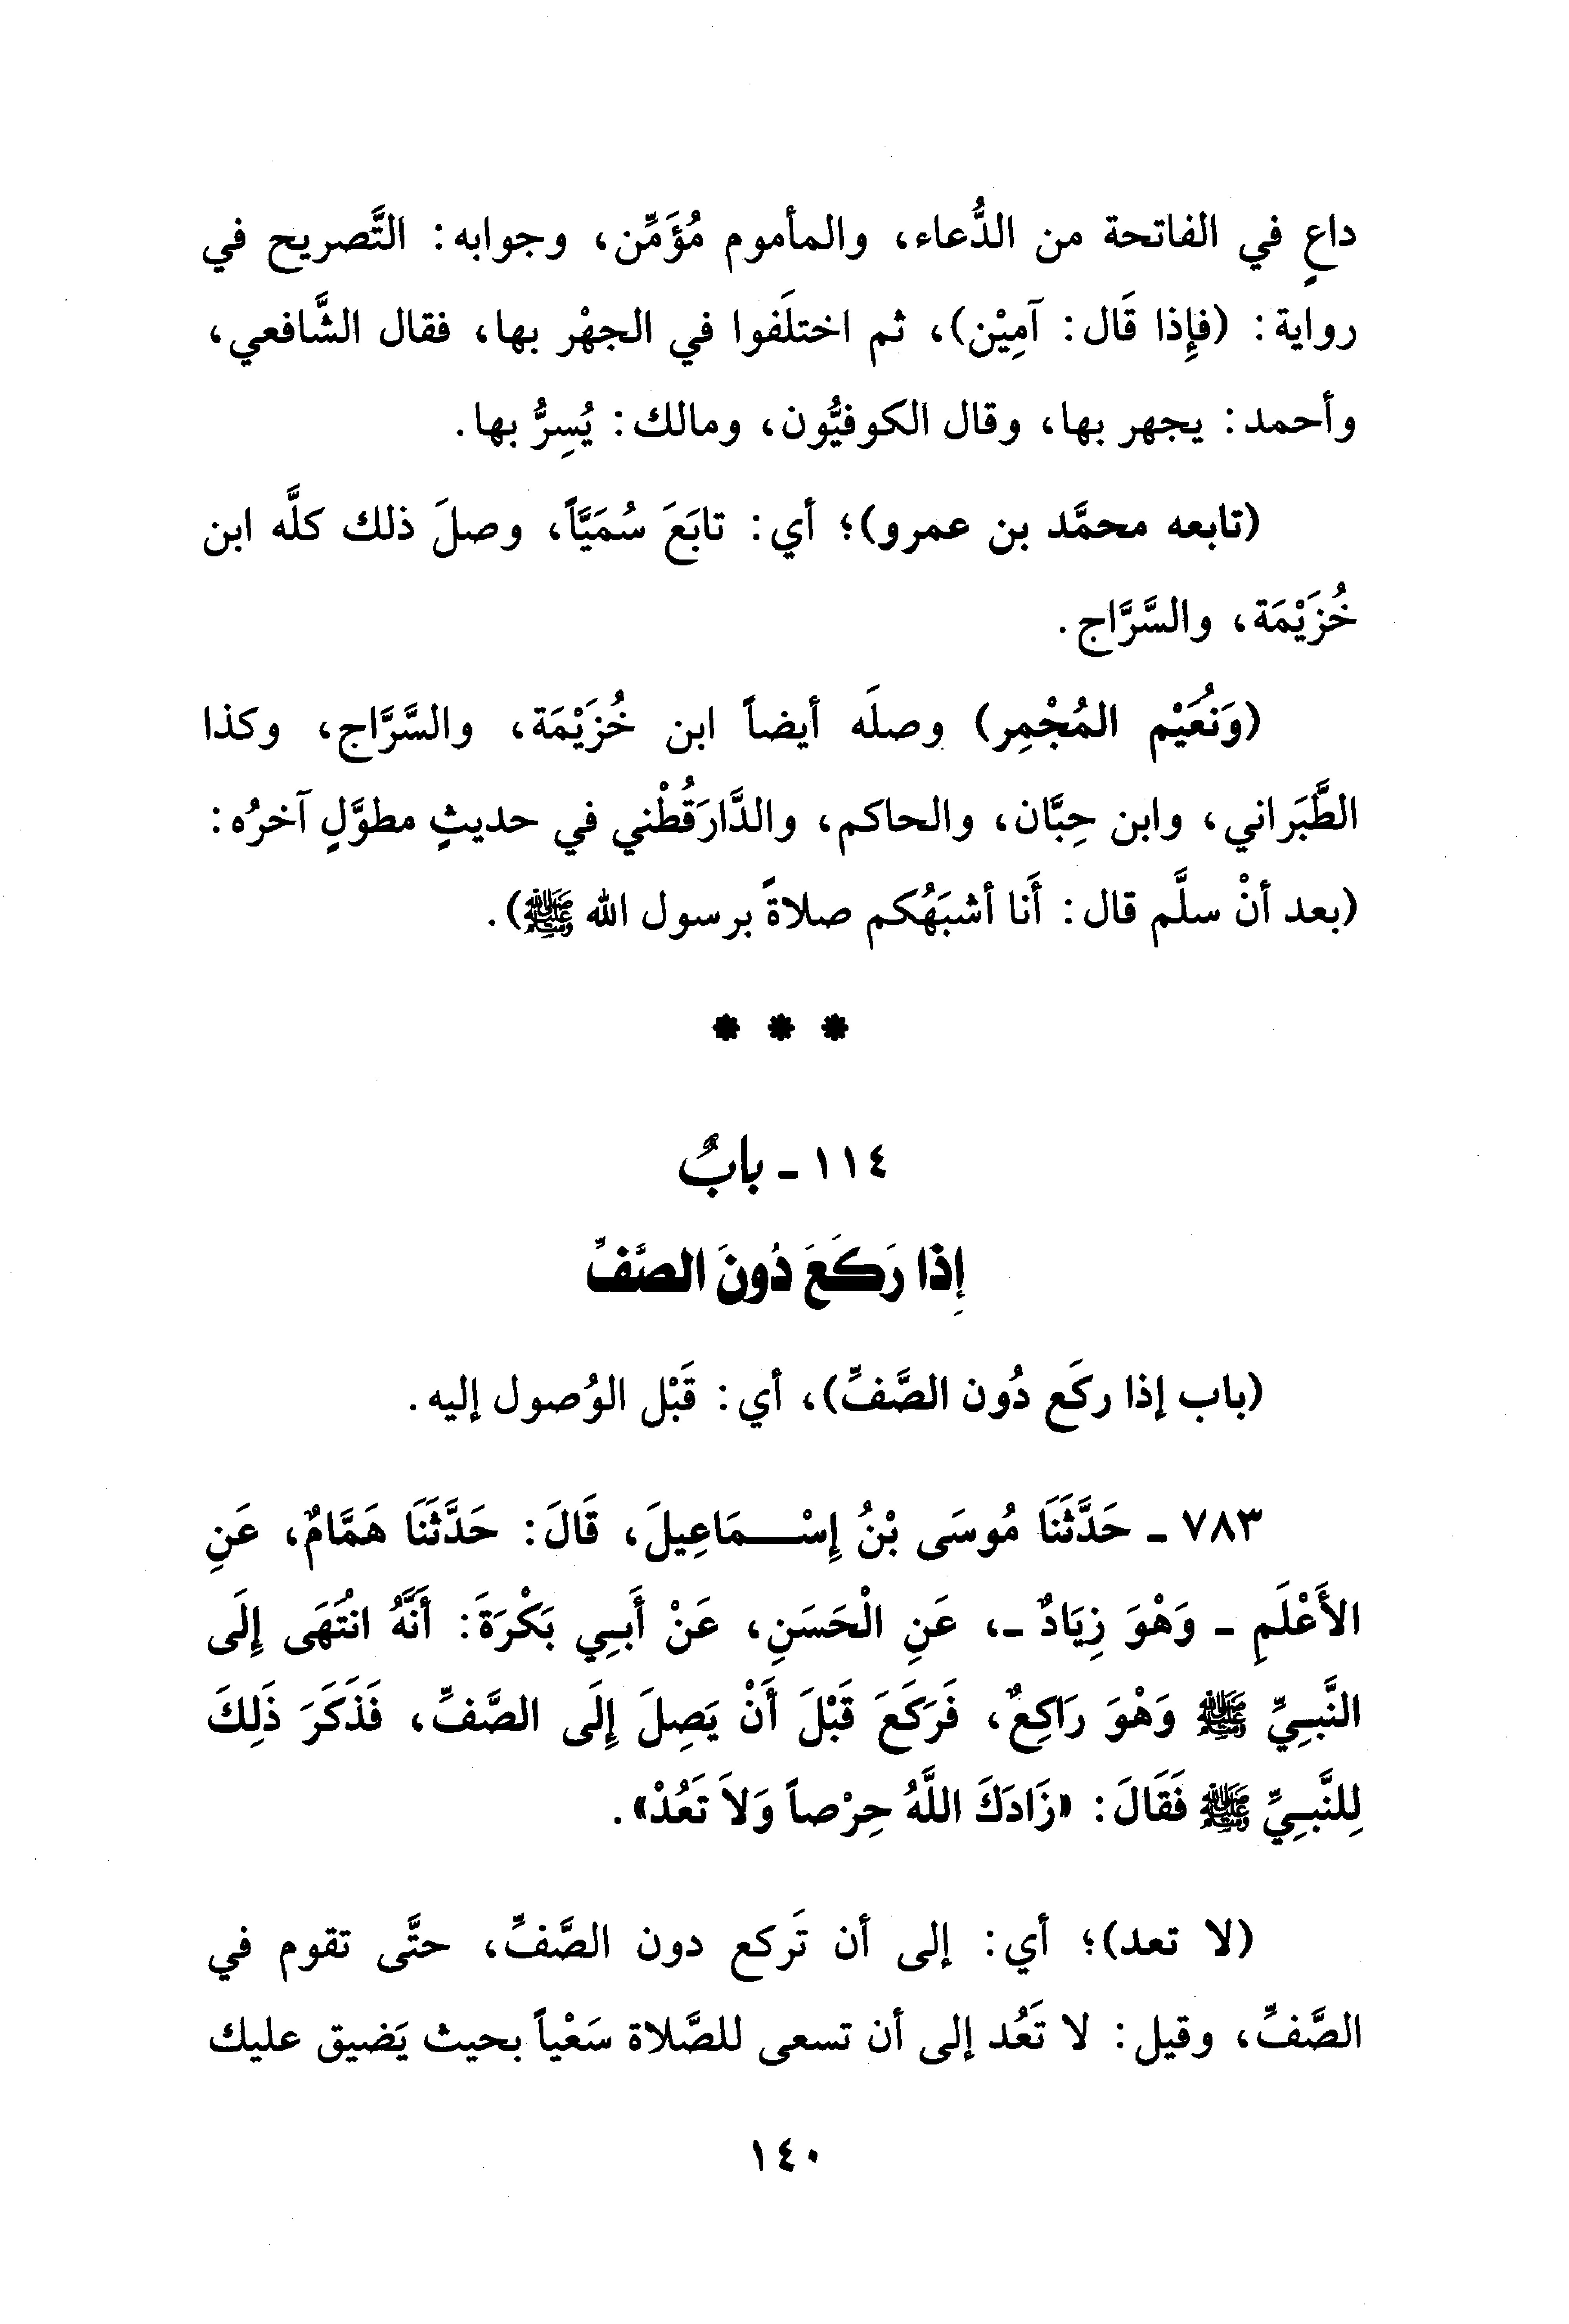 داعٍ في الفاتحة من الدُّعاء، والمأموم مُؤَمِّن، وجوابه: التَّصريح في
رواية: (فإِذا قَال: آمِيْن)، ثم اختلَفوا في الجهْر بها، فقال الشَّافعي،
وأحمد: يجهر بها، وقال الكوفيُّون، ومالك: يُسِرُّ بها.
(تابعه محمَّد بن عمرو)؛ أي: تابَعَ سُمَيَّاً، وصلَ ذلك كلَّه ابن
خُزَيْمَة، والسَّرَّاج.
(وَنُعَيْم المُجْمِر) وصلَه أيضاً ابن خُزَيْمَة، والسَّرَّاج، وكذا
الطَّبَراني، وابن حِبَّان، والحاكم، والدَّارَقُطْني في حديثٍ مطوَّلٍ آخرُه:
(بعد أنْ سلَّم قال: أَنا أشبَهُكم صلاةً برسول الله ﷺ).
* * *
١١٤ - بابٌ
إِذا رَكَعَ دُونَ الصَّفِّ
(باب إذا ركَع دُون الصَّفِّ)، أي: قَبْل الوُصول إليه.
٧٨٣ - حَدَّثَنَا مُوسَى بْنُ إِسْـــمَاعِيلَ، قَالَ: حَدَّثَنَا هَمَّامٌ، عَنِ
الأَعْلَمِ - وَهْوَ زِيَادٌ -، عَنِ الْحَسَنِ، عَنْ أَبِي بَكْرَةَ: أَنَّهُ انْتَهَى إِلَى
النَّبِيِّ ﷺ وَهْوَ رَاكِعٌ، فَرَكَعَ قَبْلَ أَنْ يَصِلَ إِلَى الصَّفِّ، فَذَكَرَ ذَلِكَ
لِلنَّبِيِّ ﷺ فَقَالَ: «زَادَكَ اللَّهُ حِرْصاً وَلاَ تَعُدْ».
(لا تعد)؛ أي: إلى أن تَركع دون الصَّفِّ، حتَّى تقوم في
الصَّفِّ، وقيل: لا تَعُد إلى أن تسعى للصَّلاة سَعْياً بحيث يَضيق عليك
١٤٠